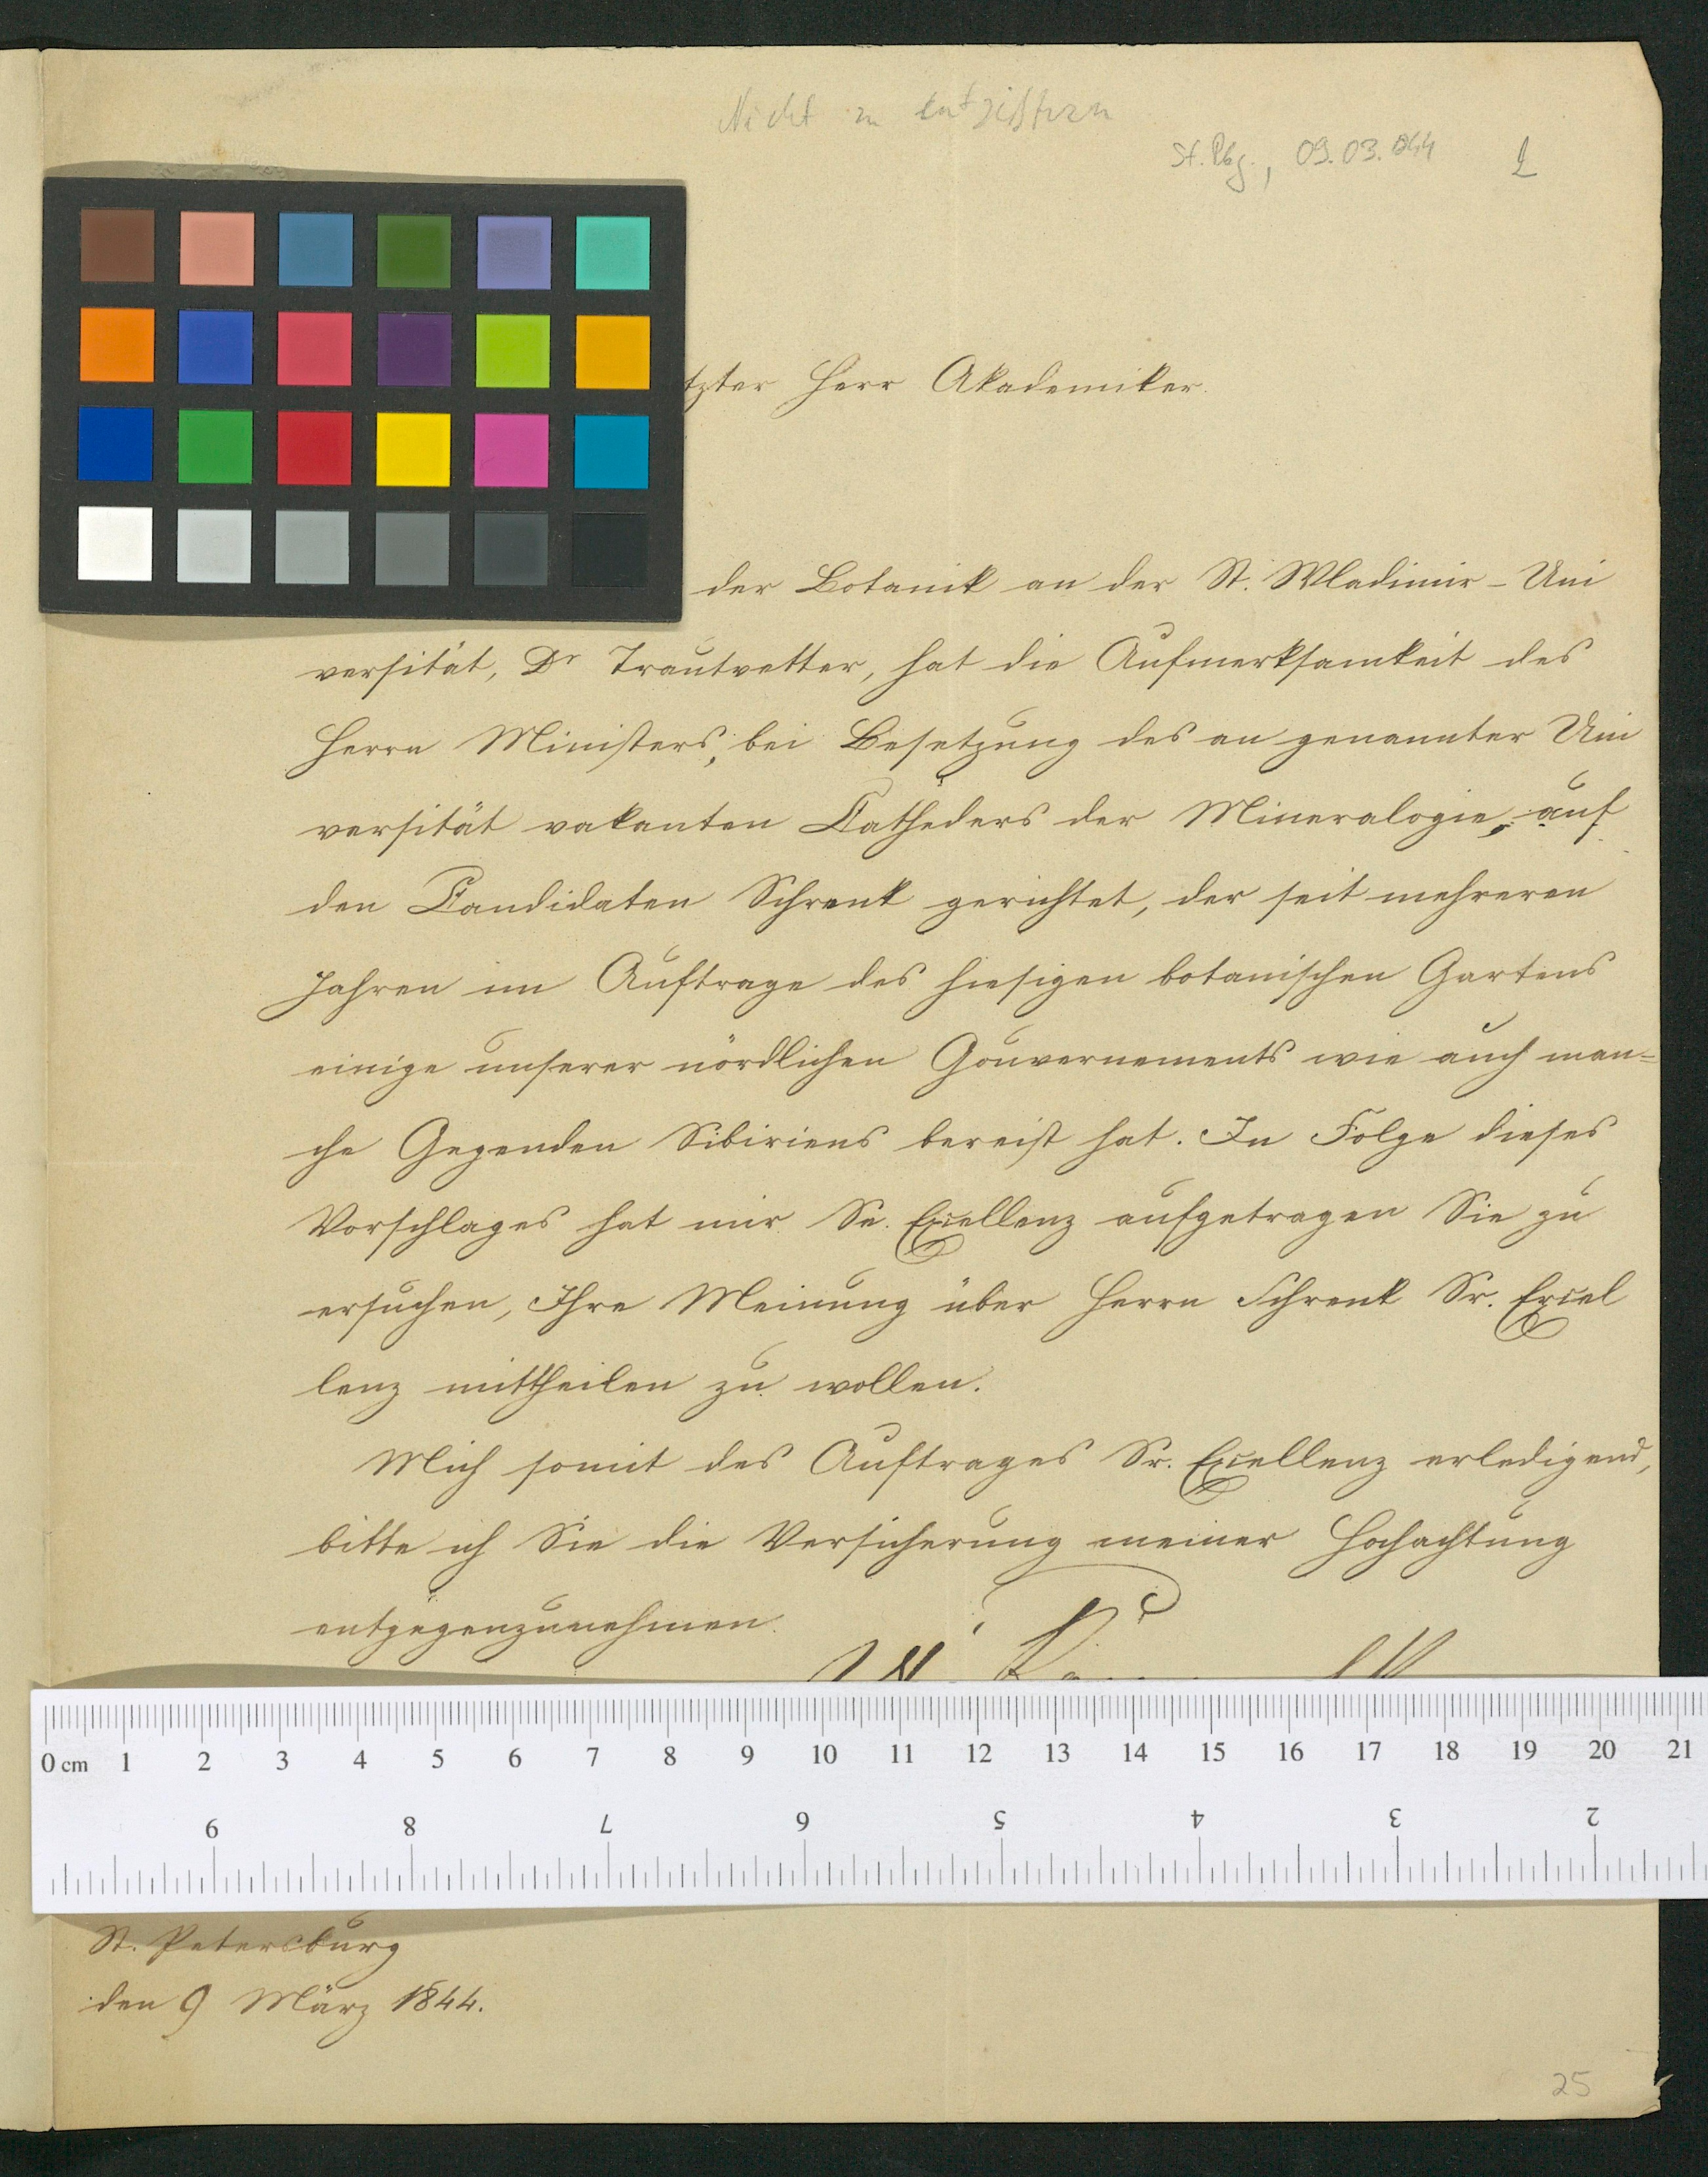 Nicht zu entziffern
St. Pbg., 09.03.844
tzter Herr Akademiker.
der Botanik an der St. Wladimir-Uni
versität, Dr Trautvetter, hat die Aufmerksamkeit des
Herrn Ministers, bei Besetzung des an genannter Uni
versität vakanten Catheders der Mineralogie, auf
den Candidaten Schrenk gerichtet, der seit mehreren
Jahren im Auftrage des hiesigen botanischen Gartens
einige unserer nördlichen Gouvernements wie auch man=
che Gegenden Sibiriens bereist hat. In Folge dieses
Vorschlages hat mir Se. Excellenz aufgetragen Sie zu
ersuchen, Ihre Meinung über Herrn Schrenk Sr. Excel
lenz mittheilen zu wollen.
Mich somit des Auftrages Sr. Excellenz erledigend,
bitte ich Sie die Versicherung meiner Hochachtung
entgegenzunehmen.
0 cm 1 2 3 4 5 6 7 8 9 10 11 12 13 14 15 16 17 18 19 20 21
9 8 7 6 5 4 3 2
St. Petersburg
den 9 März 1844.
25